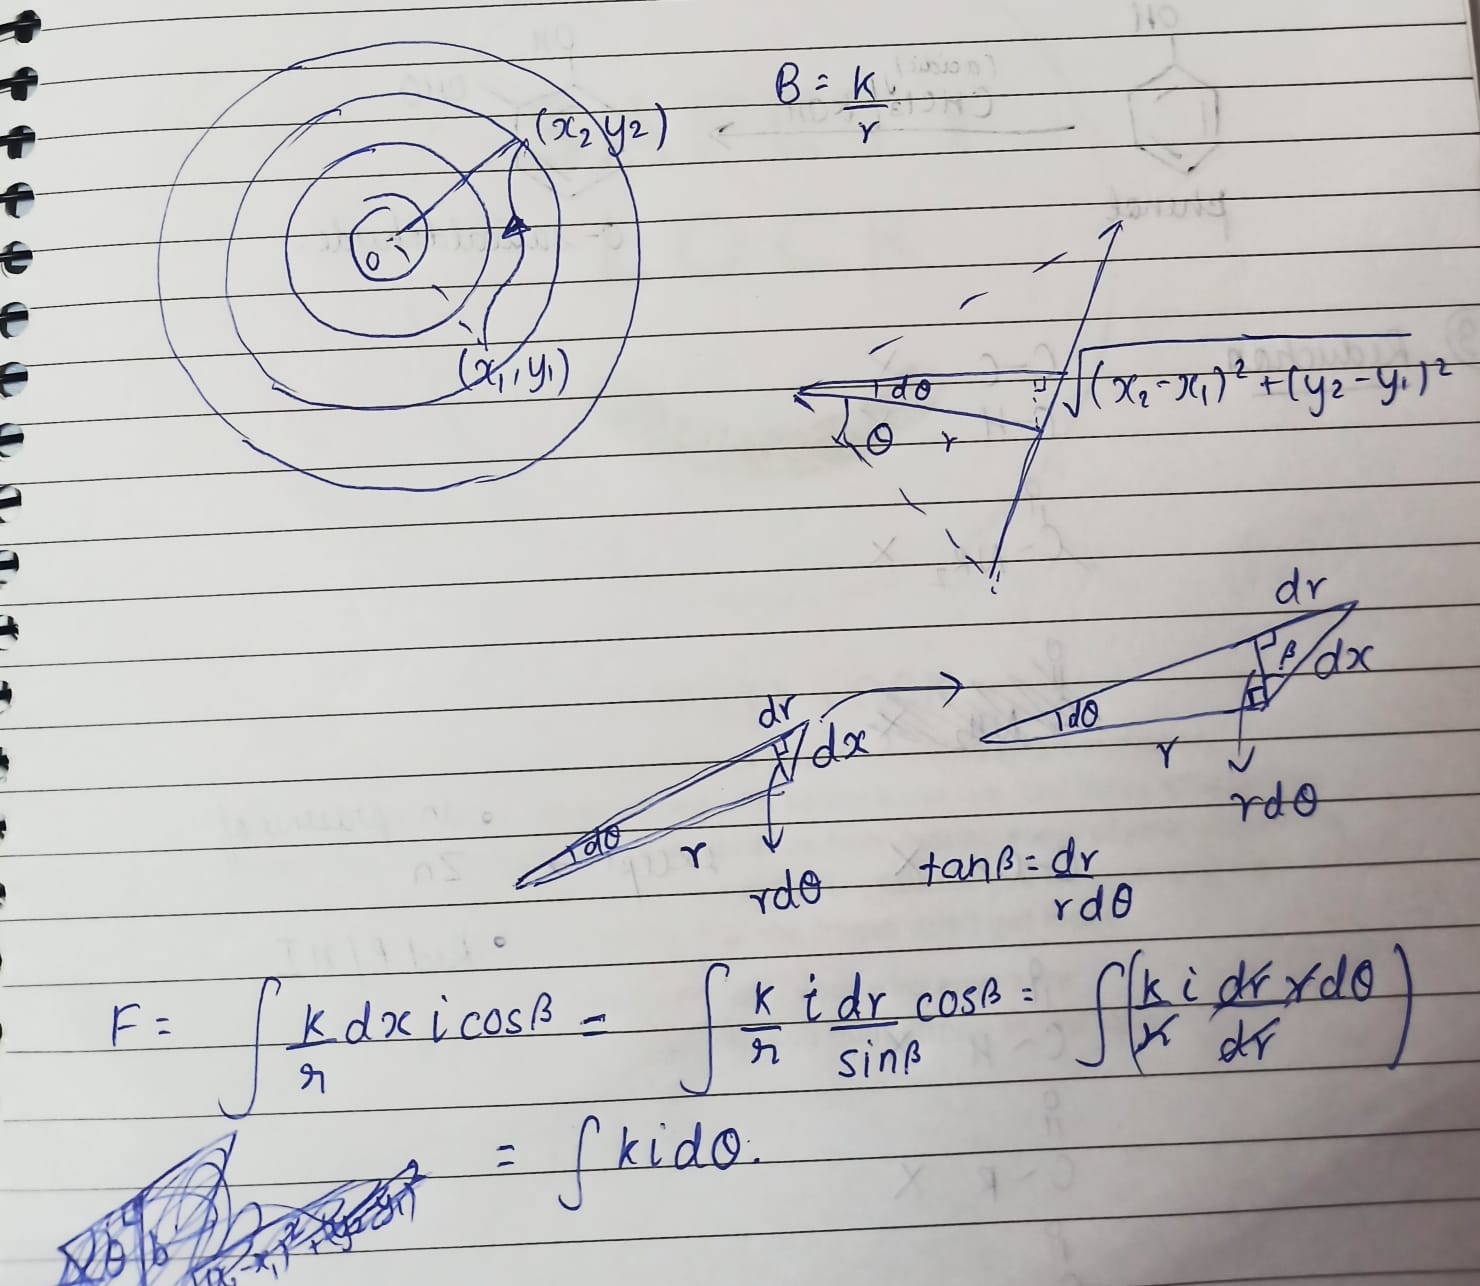 B = k/r
(x₂ y₂)
O
(x₁, y₁)
dθ
√(x₂-x₁)² + (y₂-y₁)²
θ r
dr
β dx
dθ
r
rdθ
dr
dx
dθ
r
rdθ
tanβ = dr/rdθ
F = ∫ k/r dx i cosβ = ∫ k/r i dr/sinβ cosβ = ∫ (k/r i dr rdθ/dr)
= ∫ k i dθ.